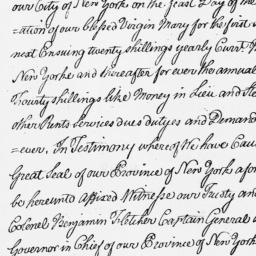 our City of New York on the feast Day of the
=ation of our blessed Virgin Mary for the first
next Ensuing twenty shillings yearly Curr.t
New Yorke and thereafter for ever the annual
Fourty shillings like Money in Lieu and
other Rents Services dues dutyes and Demand
=ever. In Testimony whereof We have Cau
Great Seal of our Province of New York afor
be hereunto affixed Witnesse our Trusty and
Colonel Benjamin Fletcher Captain General
Governor in Chief of our Province of New York